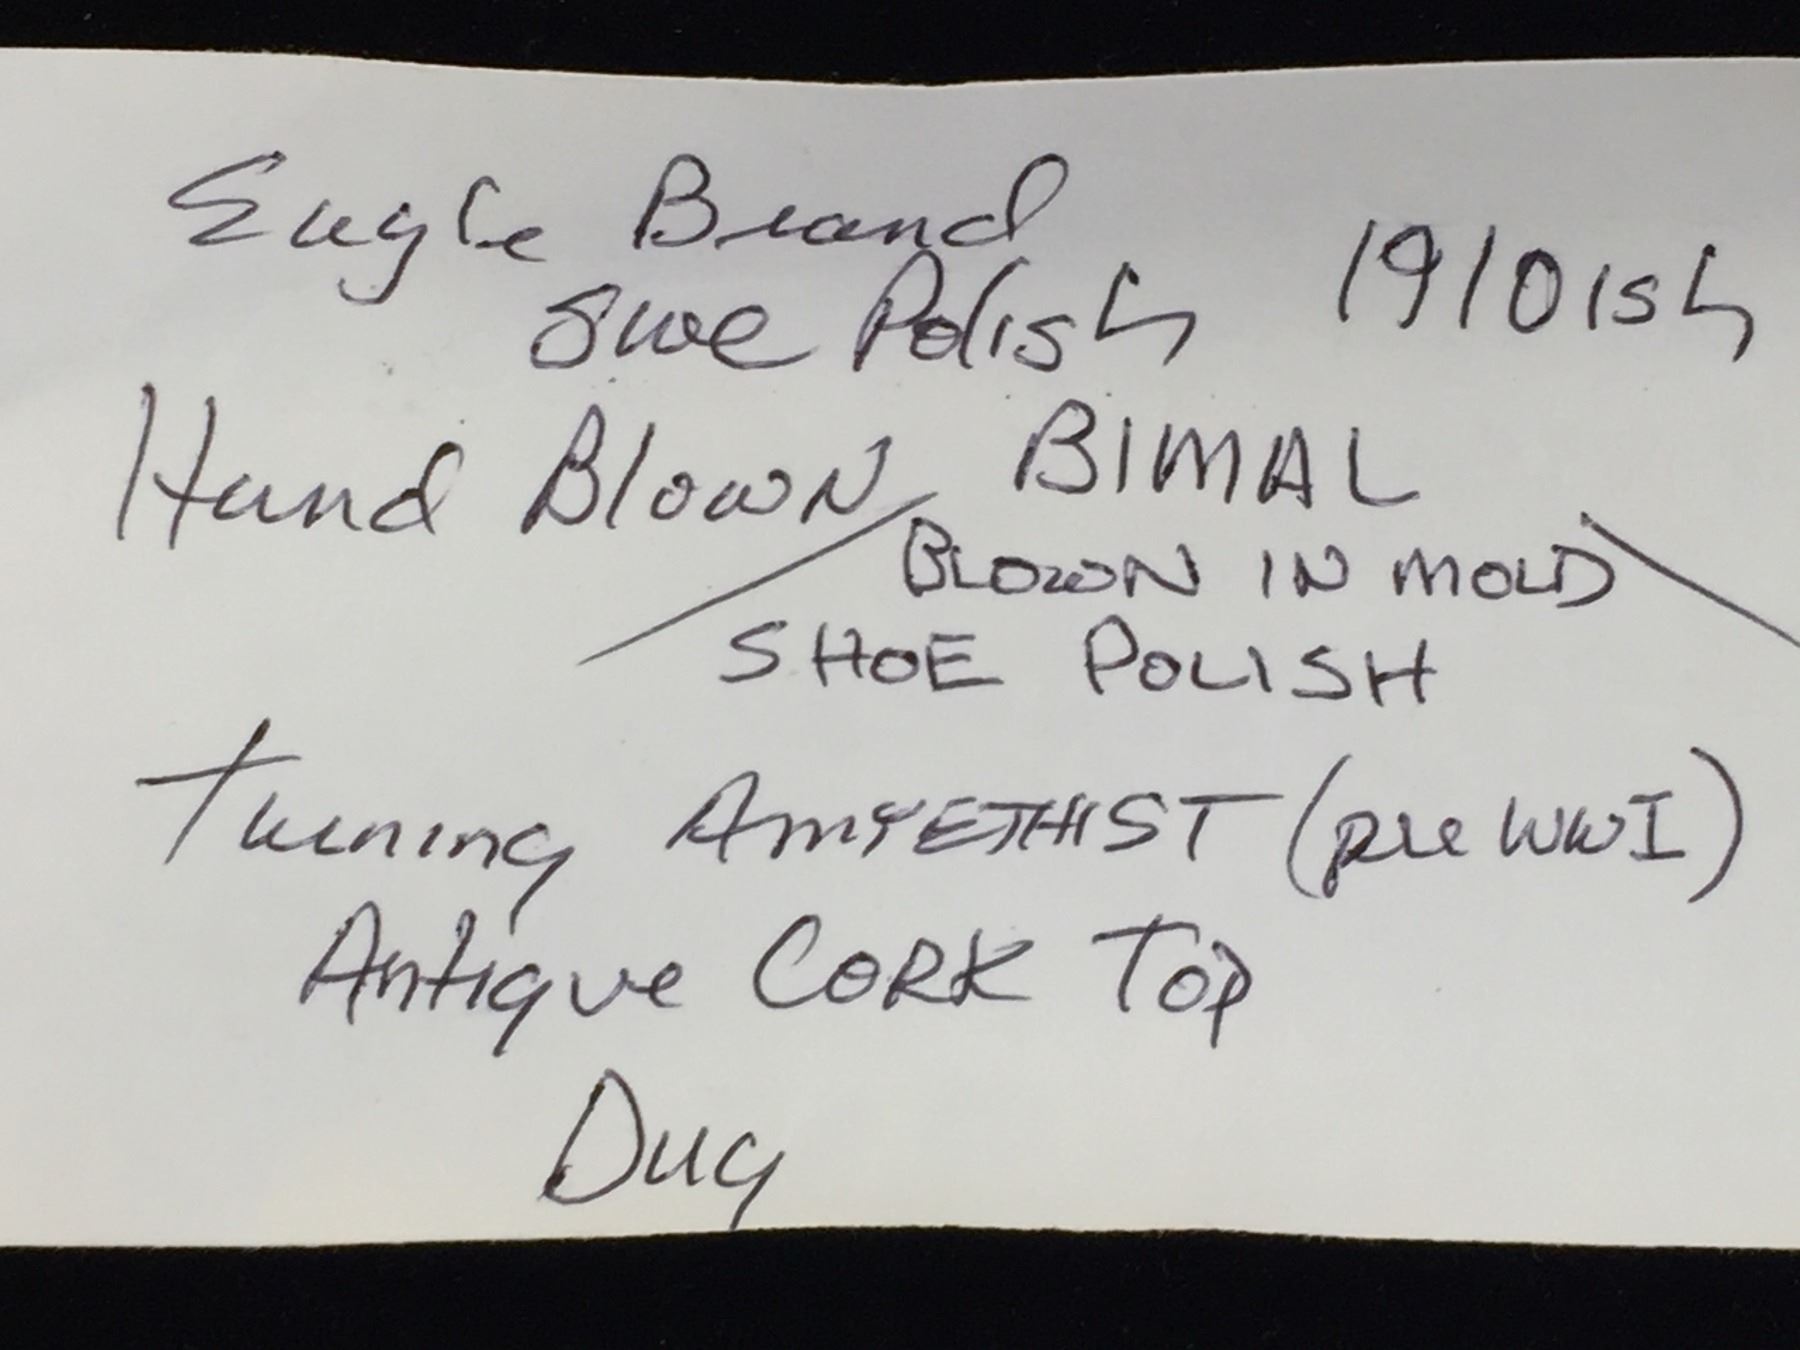 Eagle Brand
Shoe Polish 1910ish
Hand Blown BIMAL
BLOWN IN MOLD
SHOE POLISH
Turning AMYETHIST (pre WWI)
Antique CORK TOP
Dug